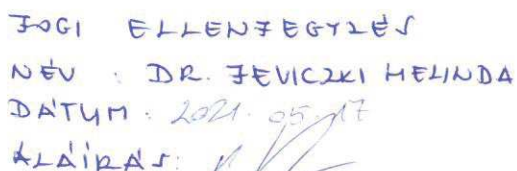 JOGI ELLENJEGYZÉS
NÉV : DR. JEVICZKI MELINDA
DÁTUM : 2021. 05. 17
ALÁÍRÁS: